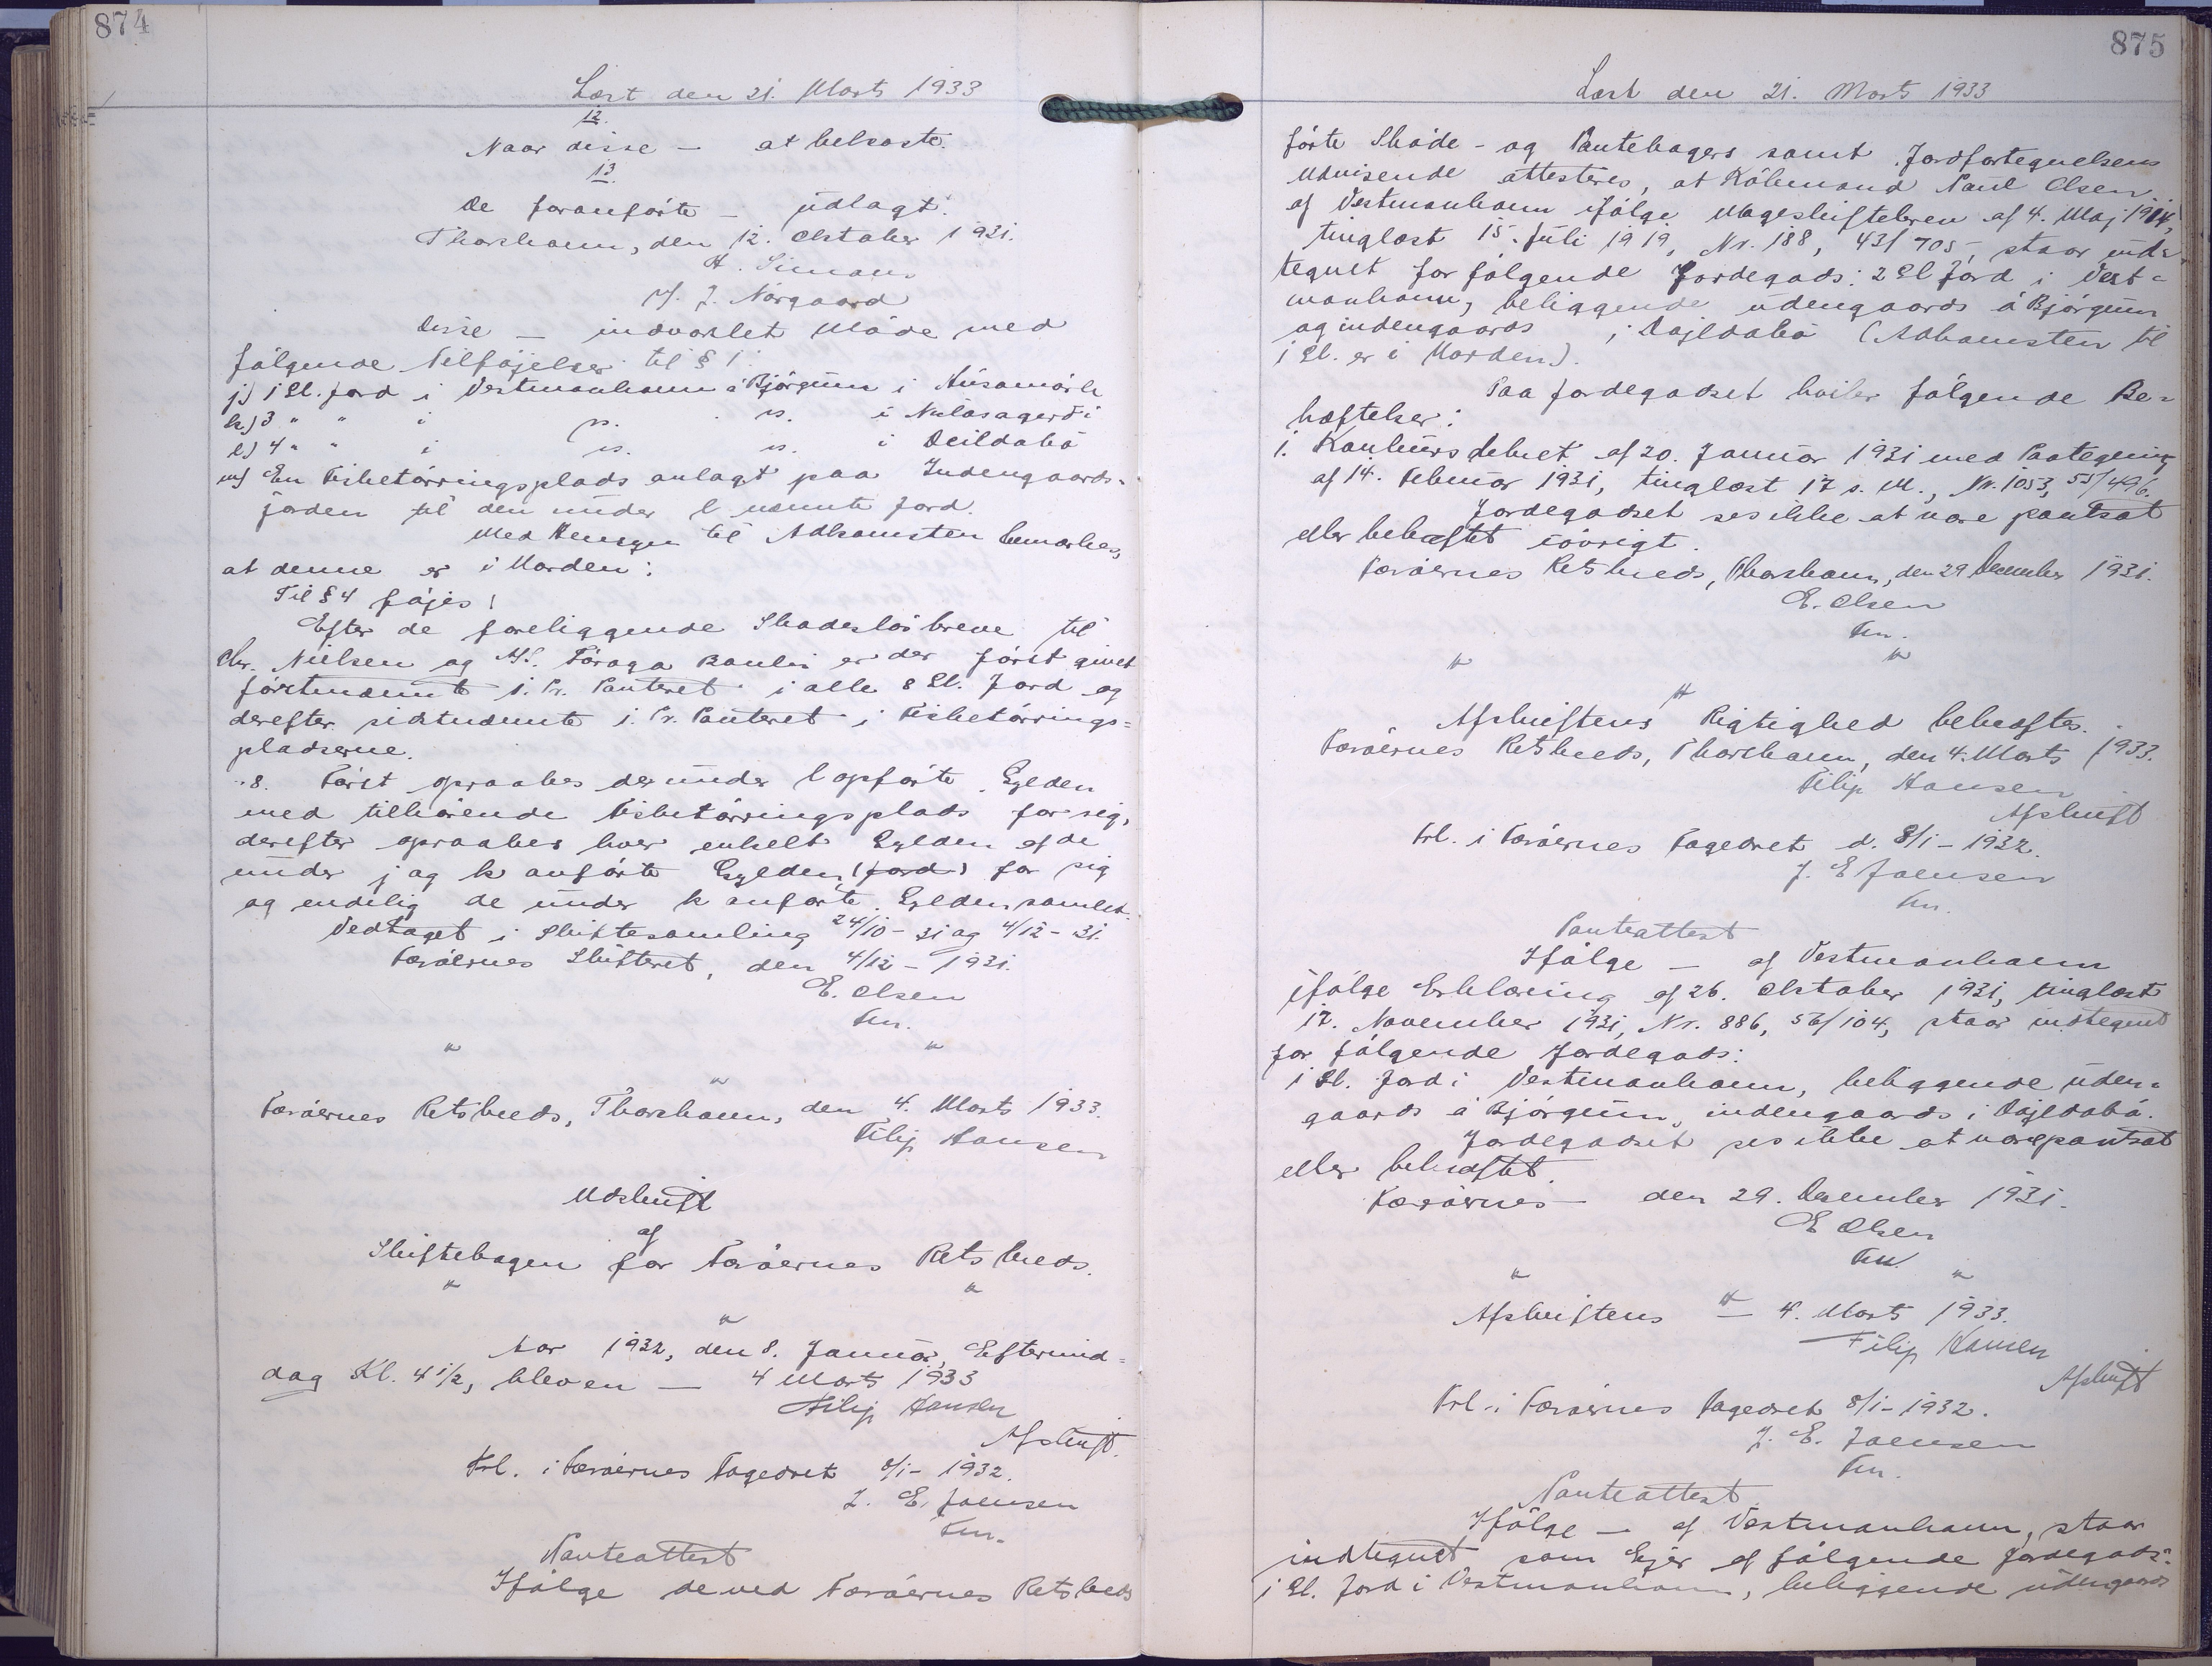 874
Læst den 21. Marts 1933
12.
Naar disse — at bekoste.
13.
De foranførte — udlagt.
Thorshavn, den 12. Oktober 1931.
H. Simons
/ J. Nørgaard
Disse — indvarslet Møde med
følgende Tilføjelser til § 1.
j) 1 Gl. Jord i Vestmanhavn á Bjórgum i Húsamørk
k) 3 " " i ps. is. i
l) 4 " " i is. is. i Deildabø
m) En Fisketørringsplads anlagt paa Indengaards-
jorden til den under l nævnte Jord.
Med Hensyn til Adkomsten bemærkes,
at denne er i Orden:
Til § 4 føjes:
Efter de foreliggende Skadesløsbreve til
Chr. Nielsen og A/S. Føroya Banki er der først givet
førstnævnte 1. Pr. Panteret i alle 8 Gl. Jord og
derefter sidstnævnte 1. Pr. Panteret i Fisketørrings=
pladserne.
" 8. Først opraabes der under l opførte Ejendom
med tilhørende Fisketørringsplads for sig,
derefter opraabes hver enkelt Ejendom af de
under j og k anførte Ejendom (Jord) for sig
og endelig de under k anførte Ejendom samlet.
Vedtaget i Skiftesamling 24/10 - 31 og 4/12 - 31.
Færøernes Skifteret, den 4/12 - 1931.
E. Olsen
Fm.
" "
"
Færøernes Retskreds, Thorshavn, den 4. Marts 1933.
Filip Hansen
Udskrift
af
Skiftebogen for Færøernes Retskreds.
" "
"
Aar 1932, den 8. Januar, Eftermid=
dag Kl. 4 1/2, bleven — 4 Marts 1933
Filip Hansen
Afskrift.
Frl. i Færøernes Fogedret 8/1 - 1932.
J. E. Joensen
Fm.
Panteattest
Ifølge de ved Færøernes Retskreds
875
Læst den 21. Marts 1933
førte Skøde- og Pantebøgers samt Jordfortegnelsens
Udvisende attesteres, at Købmand Paul Olsen
af Vestmanhavn ifølge Mageskiftebrev af 4. Maj 1914,
tinglæst 15. Juli 1919, Nr. 188, 43/705, staar ind=
tegnet for følgende Jordegods: 2 Gl Jord i Vest=
manhavn, beliggende udengaards á Bjórgum
og indengaards i Dajldabø (Adkomsten til
1 Gl. er i Orden).
Paa Jordegodset hviler følgende Be=
hæftelser:
1. Konkursdekret af 20. Januar 1931 med Paategning
af 14. Februar 1931, tinglæst 17 s. M., Nr. 1053, 55/496.
Jordegodset ses ikke at være pantsat
eller behæftet iøvrigt.
Færøernes Retskreds, Thorshavn, den 29 December 1931.
E. Olsen
Fm.
" "
"
Afskriftens Rigtighed bekræftes.
Færøernes Retskreds, Thorshavn, den 4. Marts 1933.
Filip Hansen
Afskrift
Frl. i Færøernes Fogedret d. 8/1 - 1932.
J. E Joensen
Fm.
Panteattest
Ifølge — af Vestmanhavn
ifølge Erklæring af 26. Oktober 1931, tinglæst
17. November 1931, Nr. 886, 56/104, staar indtegnet
for følgende Jordegods:
1 Gl. Jord i Vestmanhavn, beliggende uden=
gaards á Bjórgum, indengaards i Dajldabø.
Jordegodset ses ikke at være pantsat
eller behæftet.
Færøernes — den 29. December 1931.
E Olsen
Fm.
" "
"
Afskriftens — 4. Marts 1933.
Filip Hansen
Afskrift
Frl. i Færøernes Fogedret 8/1 - 1932.
J. E. Joensen
Fm.
Panteattest
Ifølge — af Vestmanhavn, staar
indtegnet som Ejer af følgende Jordegods:
1 Gl. Jord i Vestmanhavn, beliggende udengaards